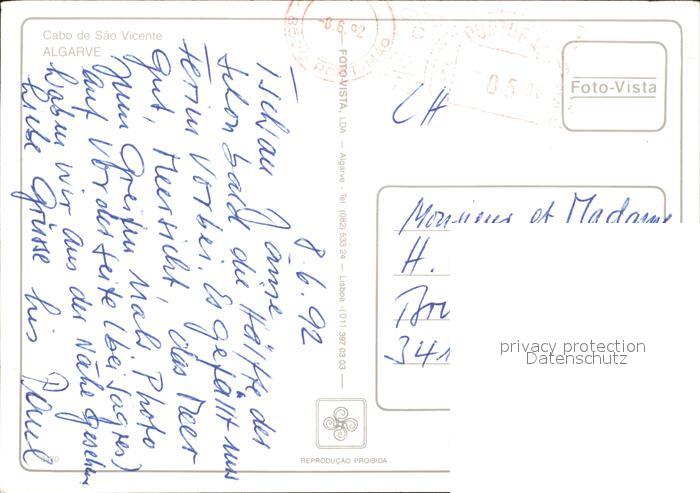 Cabo de São Vicente
ALGARVE
-8.6.92
PORTIMÃO
PORTUGAL
Foto-Vista
CH
8.6.92
Tschau
Schon bald die Hälfte der
Ferien vorbei. Es gefällt uns
gut, Meersicht das Meer
zum Greifen nah. Photo
auf Vorderseite (bei Sagres)
haben wir aus der Nähe gesehen
Liebe Grüsse bis
FOTO-VISTA, LDA — Algarve - Tel. (082) 533 24 — Lisboa - (01) 397 63 03
Monsieur et Madame
H.
341
privacy protection
Datenschutz
REPRODUÇÃO PROIBIDA